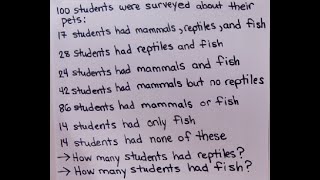 100 students were surveyed about their
pets:
17 students had mammals, reptiles, and fish
28 students had reptiles and fish
24 students had mammals and fish
42 students had mammals but no reptiles
86 students had mammals or fish
14 students had only fish
14 students had none of these
→ How many students had reptiles?
→ How many students had fish?